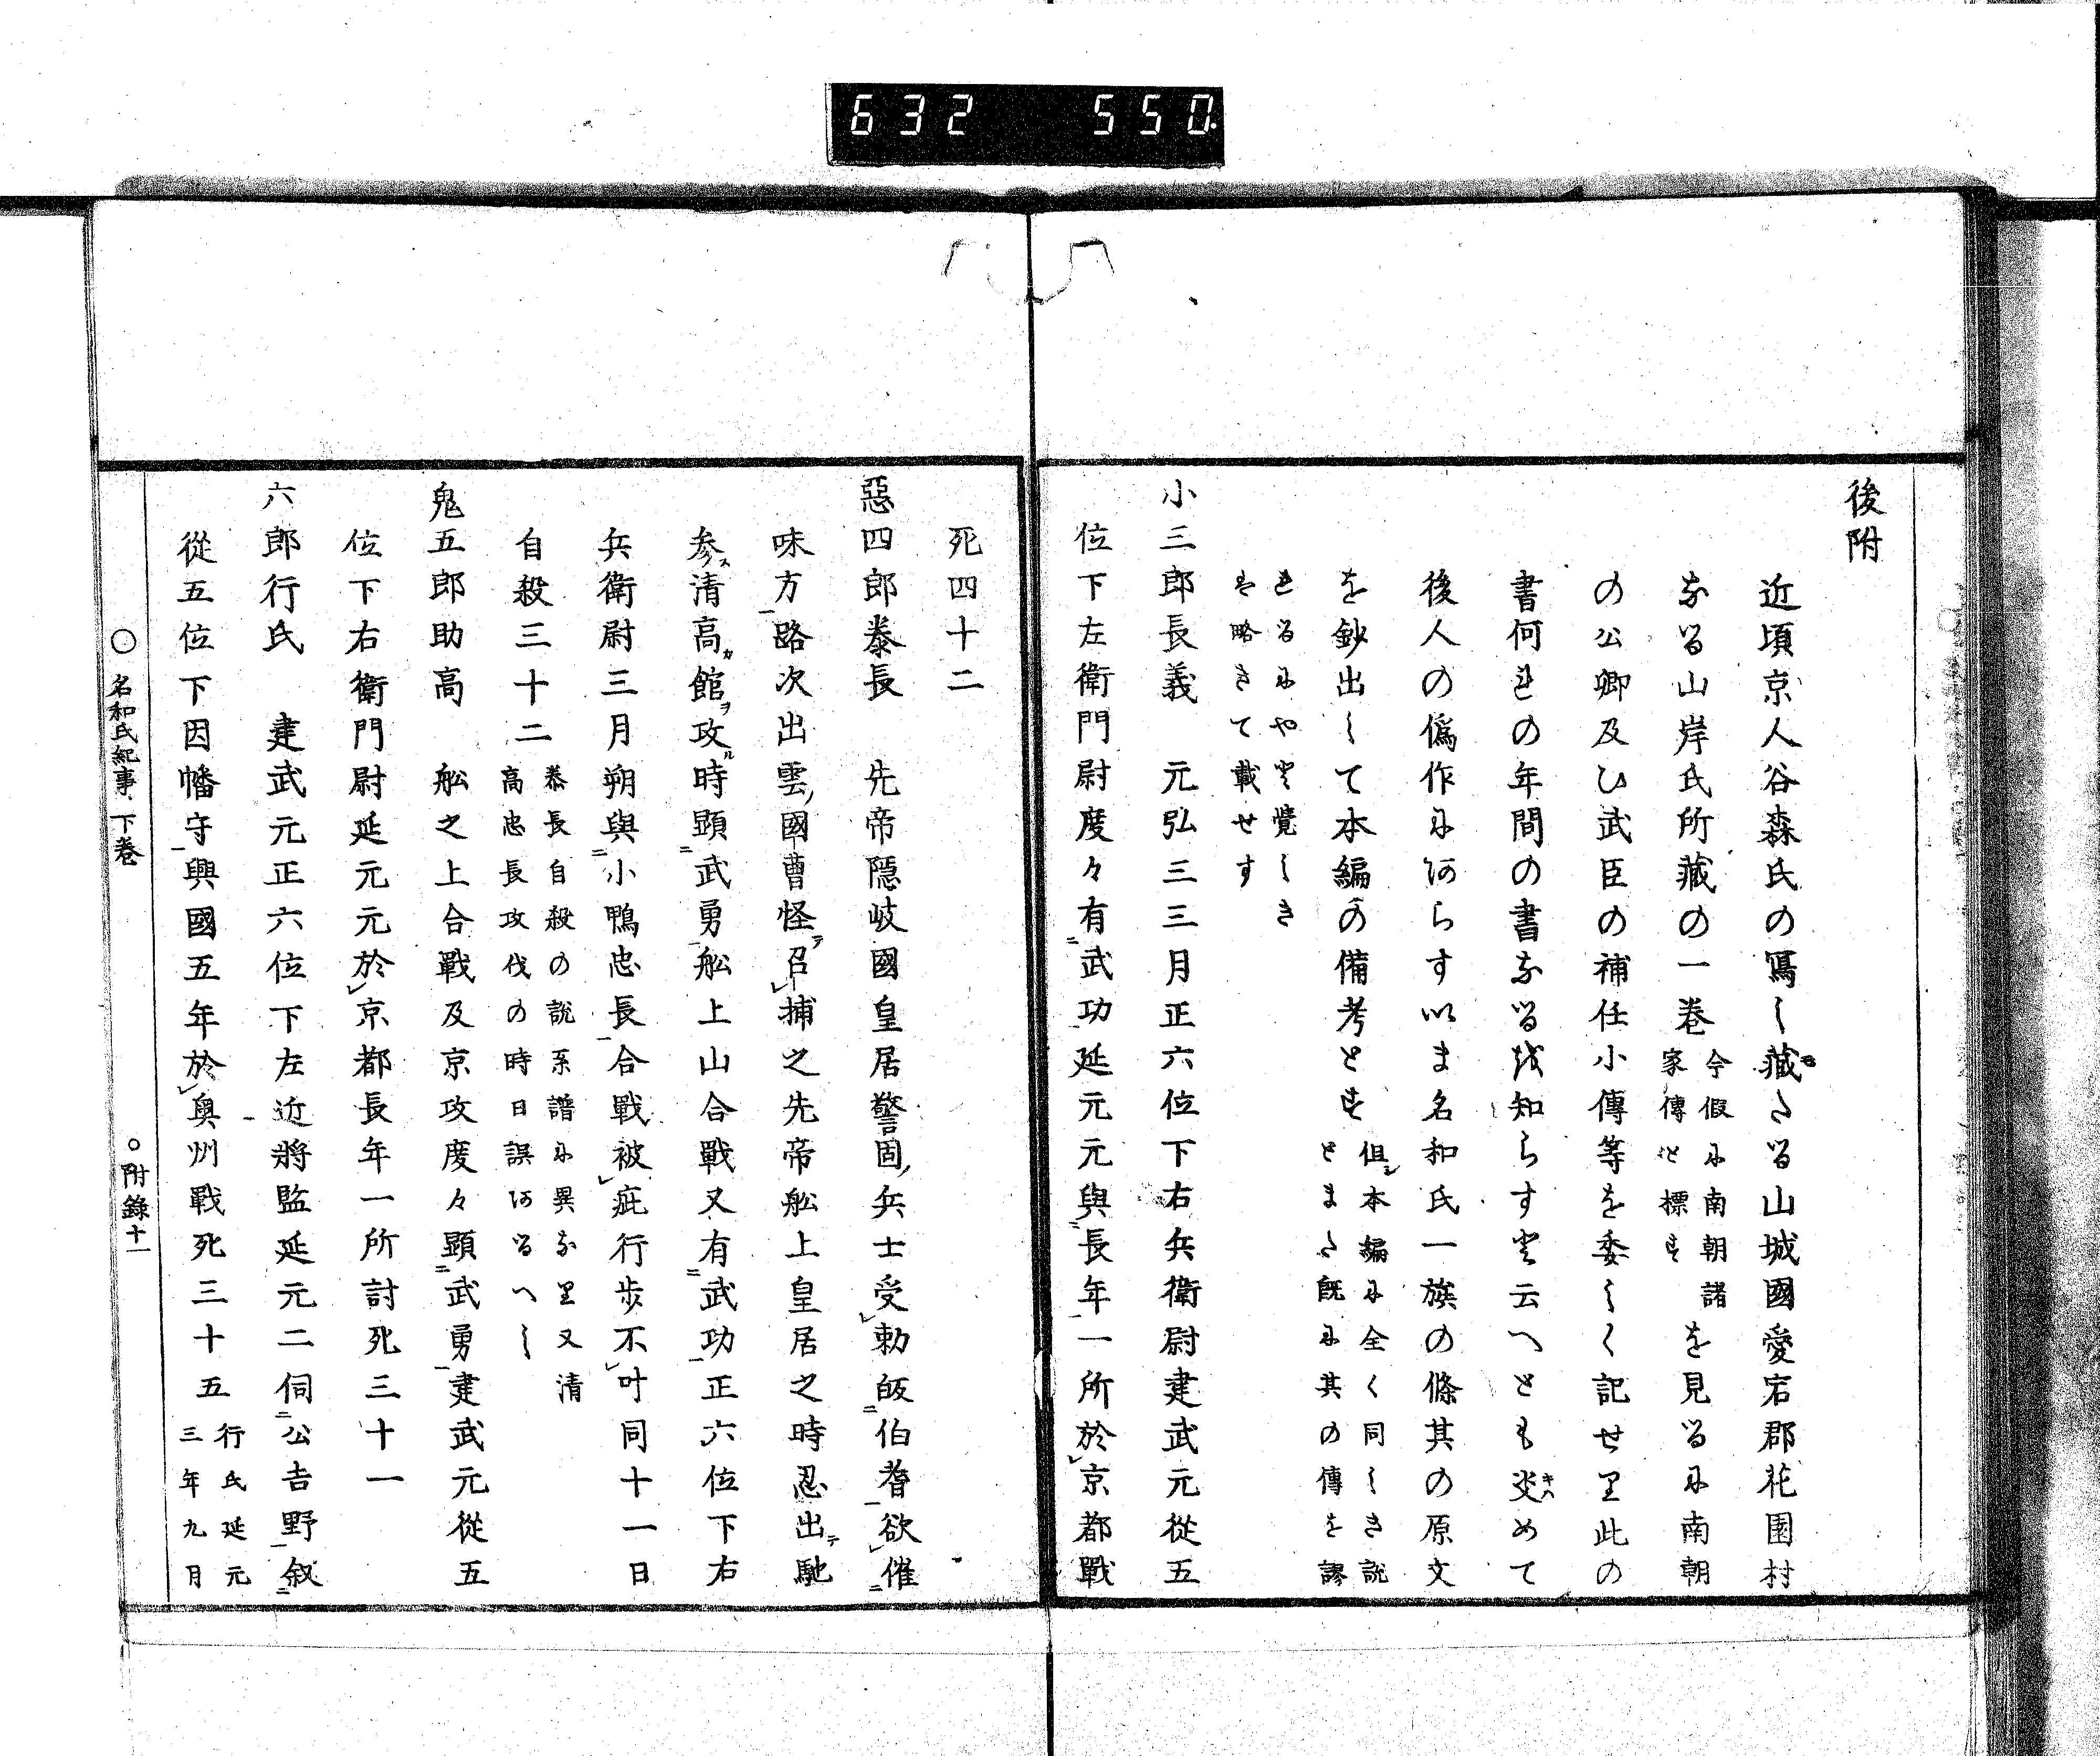 632 550
後附
近頃京人谷森氏の寫し藏もたる山城國愛宕郡花園村
なる山岸氏所藏の一卷今假に南朝諸家傳と標すを見るに南朝
の公卿及ひ武臣の補任小傳等を委しく記せり此の
書何れの年間の書なるを知らすと云へとも决キハめて
後人の僞作にあらす以ま名和氏一族の條其の原文
を鈔出して本編の備考とす但シ本編に全く同しき説とまた既に其の傳を謬
れるにやと覺しきを略きて載せす
小三郎長義 元弘三三月正六位下右兵衛尉建武元從五
位下左衛門尉度々有二武功一延元元與二長年一一所於レ京都戰
死四十二
惡四郎泰長 先帝隱岐國皇居警固ノ兵士受レ勅皈二伯耆一欲レ催二
味方一路次出雲ノ國曹怪テ召レ捕之先帝舩上皇居之時忍出テ馳
参ス清高カ館ヲ攻ル時顕二武勇一舩上山合戰又有二武功一正六位下右
兵衛尉三月朔與二小鴨忠長一合戰被レ疵行歩不レ叶同十一日
自殺三十二泰長自殺の説系譜に異なり又清高忠長攻伐の時日誤あるへし
鬼五郎助高 舩之上合戰及京攻度々顕二武勇一建武元從五
位下右衛門尉延元元於レ京都長年一所討死三十一
六郎行氏 建武元正六位下左近將監延元二伺二公吉野一叙二
從五位下因幡守一興國五年於レ奥州戰死三十五行氏延元三年九月
○名和氏紀事 下卷 ○附録十一